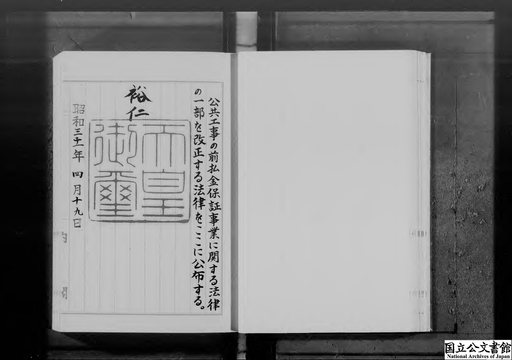 公共工事の前払金保証事業に関する法律
の一部を改正する法律をここに公布する。
裕仁
天皇
御璽
昭和三十一年四月十九日
国立公文書館
National Archives of Japan